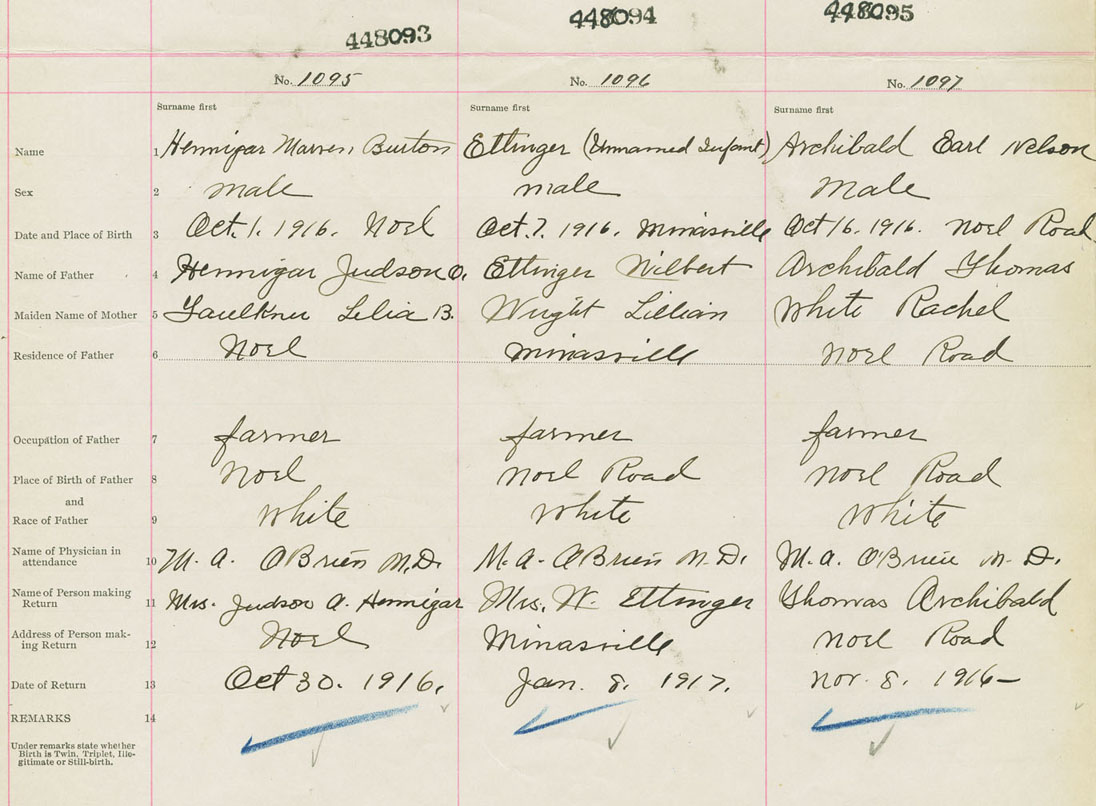 448093 448094 448095
No. 1095 No. 1096 No. 1097
Surname first Surname first Surname first
Name 1 Hennigar Warren Burton Ettinger (Unnamed Infant) Archibald Earl Nelson
Sex 2 male male Male
Date and Place of Birth 3 Oct. 1. 1916. Noel Oct. 7. 1916. Minasville Oct 16. 1916. Noel Road
Name of Father 4 Hennigar Judson A. Ettinger Wilbert Archibald Thomas
Maiden Name of Mother 5 Faulkner Lelia B. Wright Lillian White Rachel
Residence of Father 6 Noel Minasville Noel Road
Occupation of Father 7 farmer farmer farmer
Place of Birth of Father 8 Noel Noel Road Noel Road
and
Race of Father 9 White White White
Name of Physician in
attendance 10 M. A. O'Brien M.D. M. A. O'Brien M. D. M. A. O'Brien M. D.
Name of Person making
Return 11 Mrs. Judson A. Hennigar Mrs. W. Ettinger Thomas Archibald
Address of Person mak-
ing Return 12 Noel Minasville Noel Road
Date of Return 13 Oct 30. 1916. Jan. 8. 1917. Nov. 8. 1916
REMARKS 14
Under remarks state whether
Birth is Twin, Triplet, Ille-
gitimate or Still-birth.